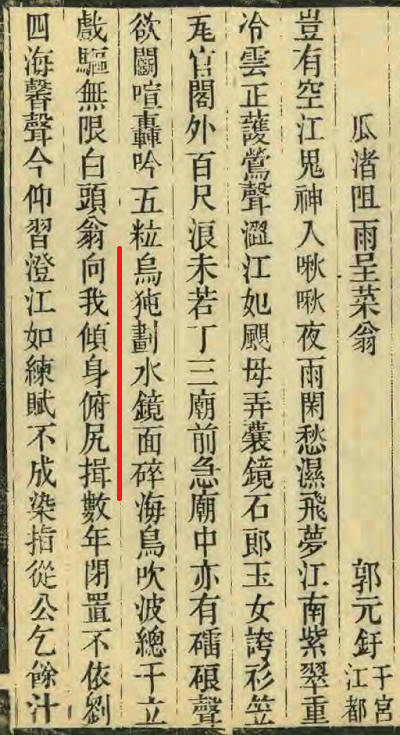 瓜渚阻雨呈菜翁
郭元釪
于宮
江都
豈有空江鬼神入啾啾夜雨閑愁濕飛夢江南紫翠重
冷雲正護鶯聲澀江妃颶母弄囊鏡石郎玉女誇衫笠
瓦官閣外百尺浪未若丁三廟前急廟中亦有礌硠聲
欲鬭喧轟吟五粒烏㹠劃水鏡面碎海鳥吹波總干立
戲驅無限白頭翁向我傾身俯尻揖數年閉置不依劉
四海馨聲今仰習澄江如練賦不成染指從公乞餘汁